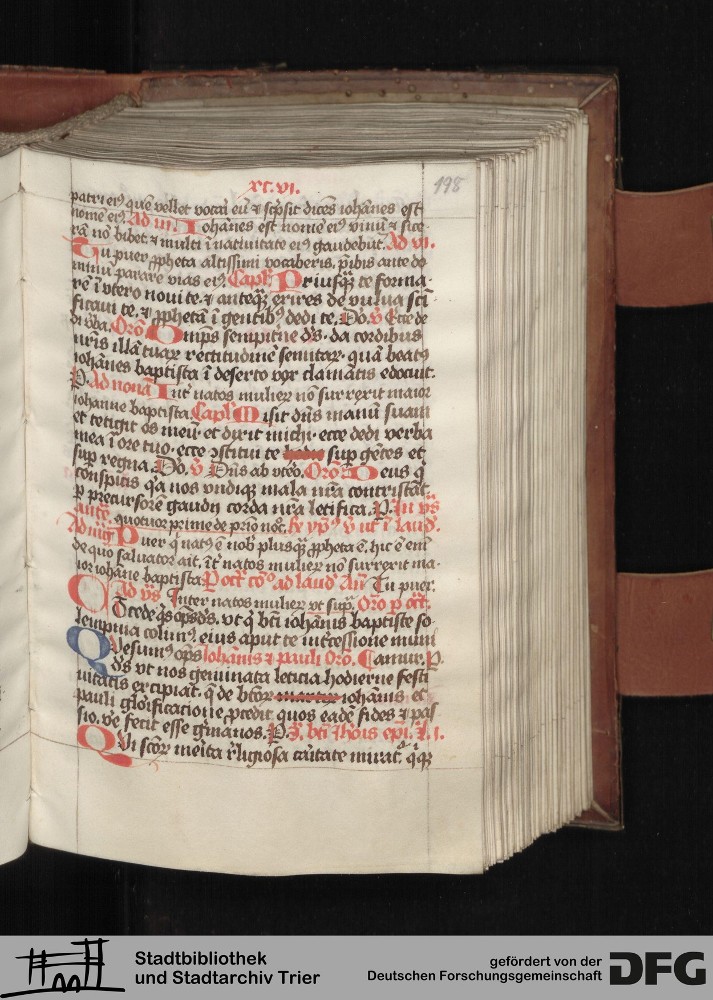 xc.vi.
198
patri eiꝰ quē vellet vocari eū ⁊ scͥpsit dicēs iohānes est
nomē eiꝰ. Ad iii. Iohānes est nomē eiꝰ vinū ⁊ sice
rā nō bibet ⁊ multi ī natiuitate eiꝰ gaudebūt. Ad vi.
Tu puer ꝓpheta altissimi vocaberis. p̄ibis ante do
minū parare vias eiꝰ. Capl̄ Priusqꝫ te forma
rē ī vtero noui te. ⁊ anteqꝫ exires de vulua scī
ficaui te. ⁊ ꝓphetā ī gentibꝰ dedi te. Do. v̄ Ecce de
di vba. Orō Omīps sempitne ds̄. da cordibus
nr̄is illā tuaꝝ rectitudinē semitaꝝ. quā beatꝰ
iohānes baptista ī deserto vox clamātis edocuit.
P. Ad nonā Int̄ natos mulieꝝ nō surrexit maior
iohanne baptista. Capl̄ Misit dn̄s manū suam
et tetigit os meū. et dixit michi. ecce dedi verba
mea ī ore tuo. ecce ꝯstitui te hodie sup gētes et
sup regna. Do. v̄ Dn̄s ab vtēo. Orō Deus q̄
cōspicis qͥa nos vndiqꝫ mala nr̄a contristāt.
p̄ precursorē gaudij corda nr̄a letifica. P. In vs̄
antē. quotuor prime de prīo noc̄. v̄ vt ī laud̄.
Ad mgͬ Puer qͥ natꝰ ē nob̄ plusqꝫ ꝓpheta ē. hic ē em̄
de quo saluator ait. īt̄ natos mulieꝝ nō surrexit ma
ior iohāne baptista. P oct̄ cō ad laud̄ Añ Tu puer.
Ad vs̄ Inter natos mulieꝝ vt sup̄. Orō p oct̄.
COcede qs̄ ops̄ ds̄. vt q̄ bt̄i iohānis baptiste so
lempnia colimꝰ. eius aput te int̄cessione muni
Quesumꝰ ops̄ Iohānis ⁊ pauli Orō. amur. P.
ds̄ vt nos geminata leticia hodierne festi
uitatis excipiat. q̄ de btōꝝ martirꝝ iohānis et
pauli glōificatione ꝓcedit quos eadē fides ⁊ pas
sio. ve fecit esse gͬmanos. P. bt̄i thōis epī.
QVi scōꝝ merita r̄ligiosa caritate mirat̄.
Stadtbibliothek
und Stadtarchiv Trier
gefördert von der
Deutschen Forschungsgemeinschaft
DFG